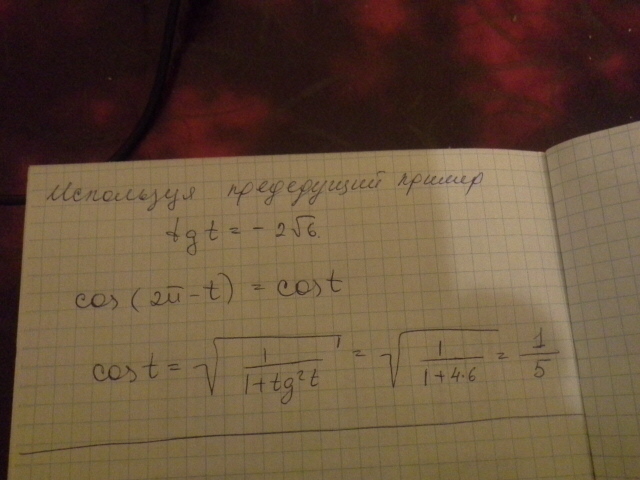 Используя предедущий пример
tg t = - 2√6.
cos (2π - t) = cos t
cos t = √(1/(1+tg²t)) = √(1/(1+4·6)) = 1/5